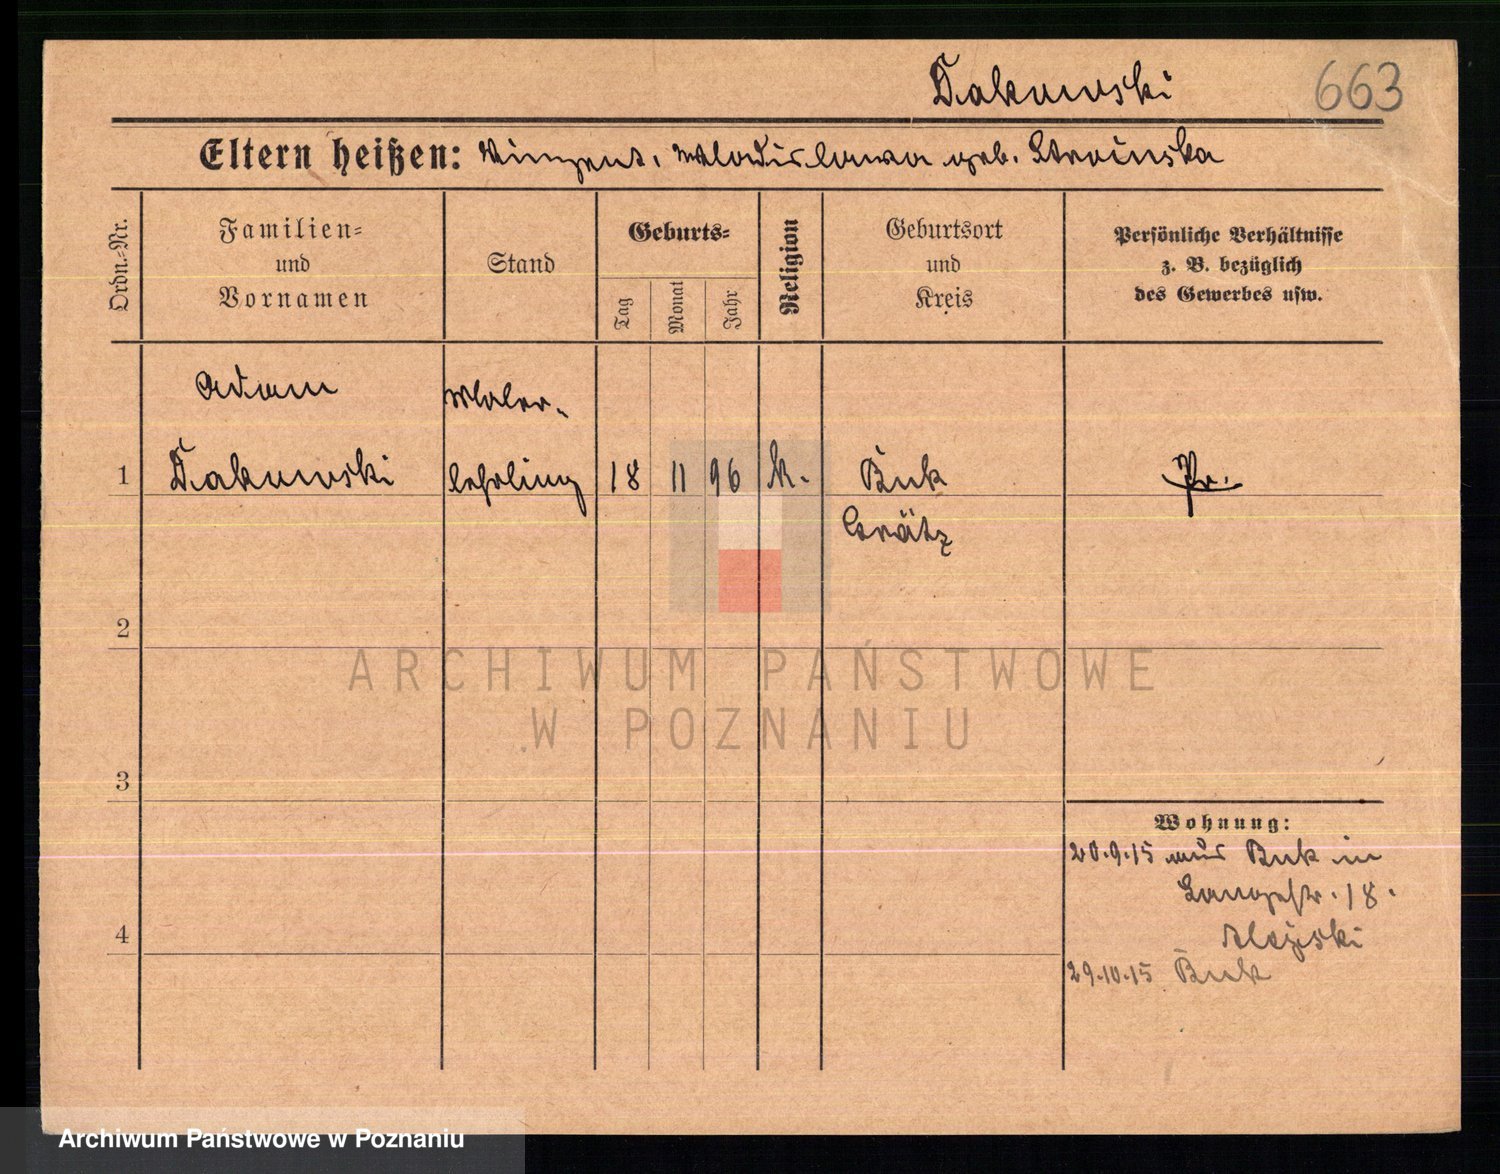 Dakowski
663
Eltern heißen: Vinzent, Wladislawa geb. Stroinska
Ordn.-Nr.
Familien-
und
Vornamen
Stand
Geburts-
Tag
Monat
Jahr
Religion
Geburtsort
und
Kreis
Persönliche Verhältnisse
z. B. bezüglich
des Gewerbes usw.
Adam
Maler-
1 Dakowski lehrling 18 11 96 k. Buk Pr.
Grätz
2
ARCHIWUM PAŃSTWOWE
W POZNANIU
3
Wohnung:
20.9.15 aus Buk in
Langestr. 18.
4
29.10.15 Buk
Archiwum Państwowe w Poznaniu